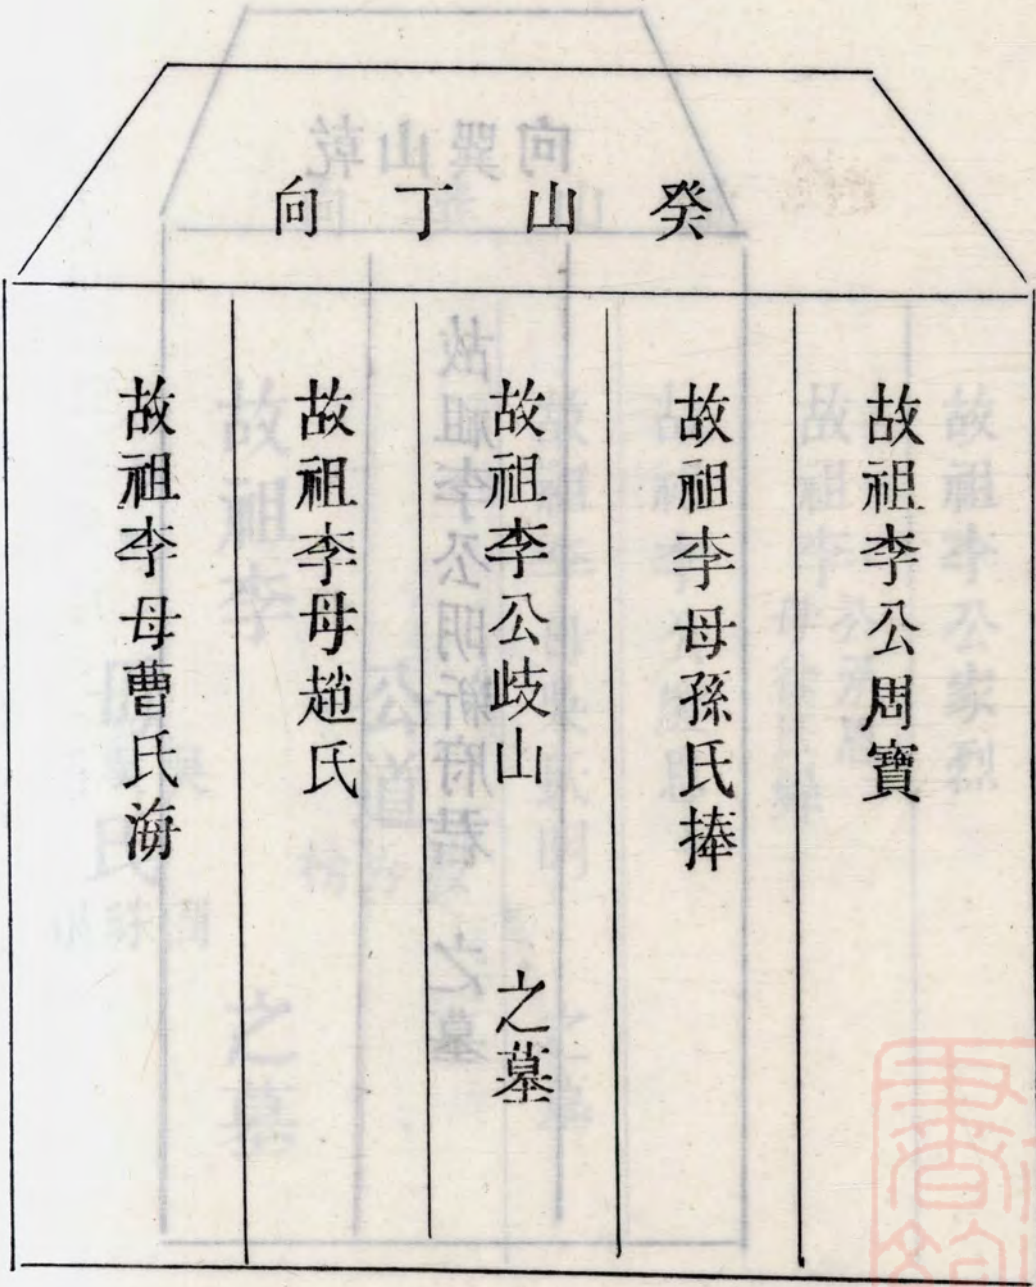 癸山丁向
故祖李公周寶
故祖李母孫氏捧
故祖李公歧山之墓
故祖李母趙氏
故祖李母曹氏海